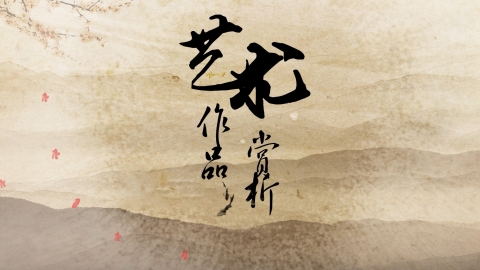 艺术
作品
赏析